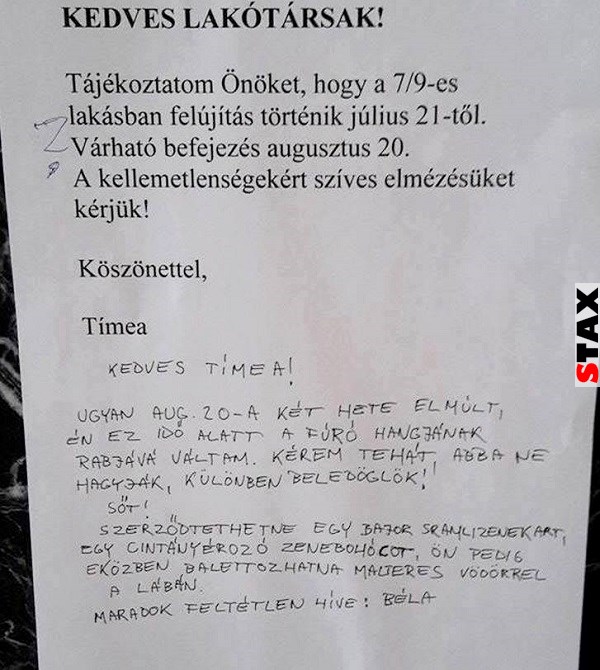 KEDVES LAKÓTÁRSAK!
Tájékoztatom Önöket, hogy a 7/9-es
lakásban felújítás történik július 21-től.
Várható befejezés augusztus 20.
A kellemetlenségekért szíves elmézésüket
kérjük!
Köszönettel,
Tímea
KEDVES TÍMEA!
UGYAN AUG. 20-A KÉT HETE ELMÚLT,
ÉN EZ IDŐ ALATT A FÚRÓ HANGJÁNAK
RABJÁVÁ VÁLTAM. KÉREM TEHÁT ABBA NE
HAGYJÁK, KÜLÖNBEN BELEDÖGLÖK!
SŐT!
SZERZŐDTETHETNE EGY BAJOR SRAMLIZENEKART,
EGY CINTÁNYÉROZÓ ZENEBOHÓCOT, ÖN PEDIG
EKÖZBEN BALETTOZHATNA MALTERES VÖDÖRREL
A LÁBÁN.
MARADOK FELTÉTLEN HÍVE: BÉLA
STAX